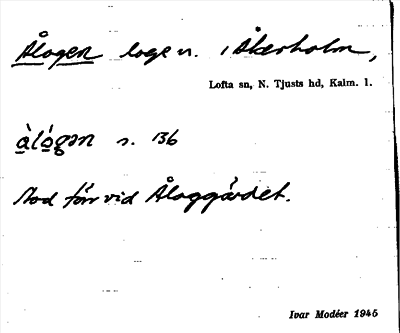 Ålogen loge n. i Åkerholm,
Lofta sn, N. Tjusts hd, Kalm. l.
å̀lógən s. 136
Stod förr vid Åloggärdet.
Ivar Modéer 1946